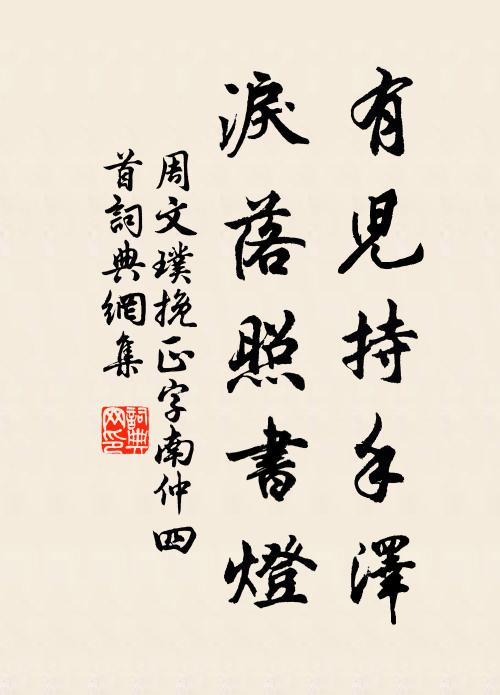 有兒持手澤
淚落照書燈
周文璞挽正字南仲四
首詞典網集
詞典
网印